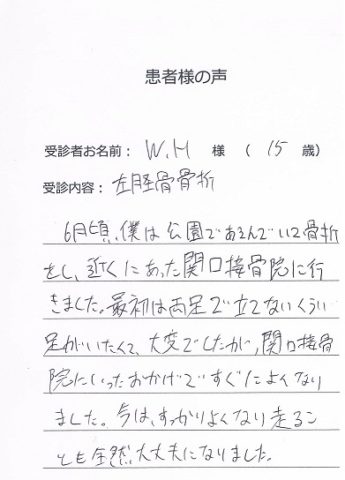 患者様の声
受診者お名前： W.H 様 （ 15 歳）
受診内容： 左脛骨骨折
6月頃、僕は公園であそんでいて骨折
をし、近くにあった関口接骨院に行
きました。最初は両足で立てないくらい
足がいたくて、大変でしたが、関口接骨
院にいったおかげですぐによくなり
ました。今は、すっかりよくなり走るこ
とも全然大丈夫になりました。